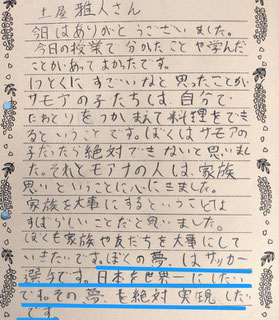 土屋 雅人さん
今日はありがとうございました。
今日の授業で分かたことや学んだ
ことがあってよかたです。
とくにすごいなと思ったことが
サモアの子たちは、自分で
にわとりをつかまえて料理をでき
るということです。ぼくはサモアの
子だったら絶対できないと思いまし
た。それとモアナの人は、家族
思いということに心にきました。
家族を大事にするということは
すばらしいことだと思いました。
ぼくも家族や友だちを大事にして
いきたいです。ぼくの夢、はサッカー
選手です。日本を世界一にしたい
です。その夢、を絶対実現したい
です